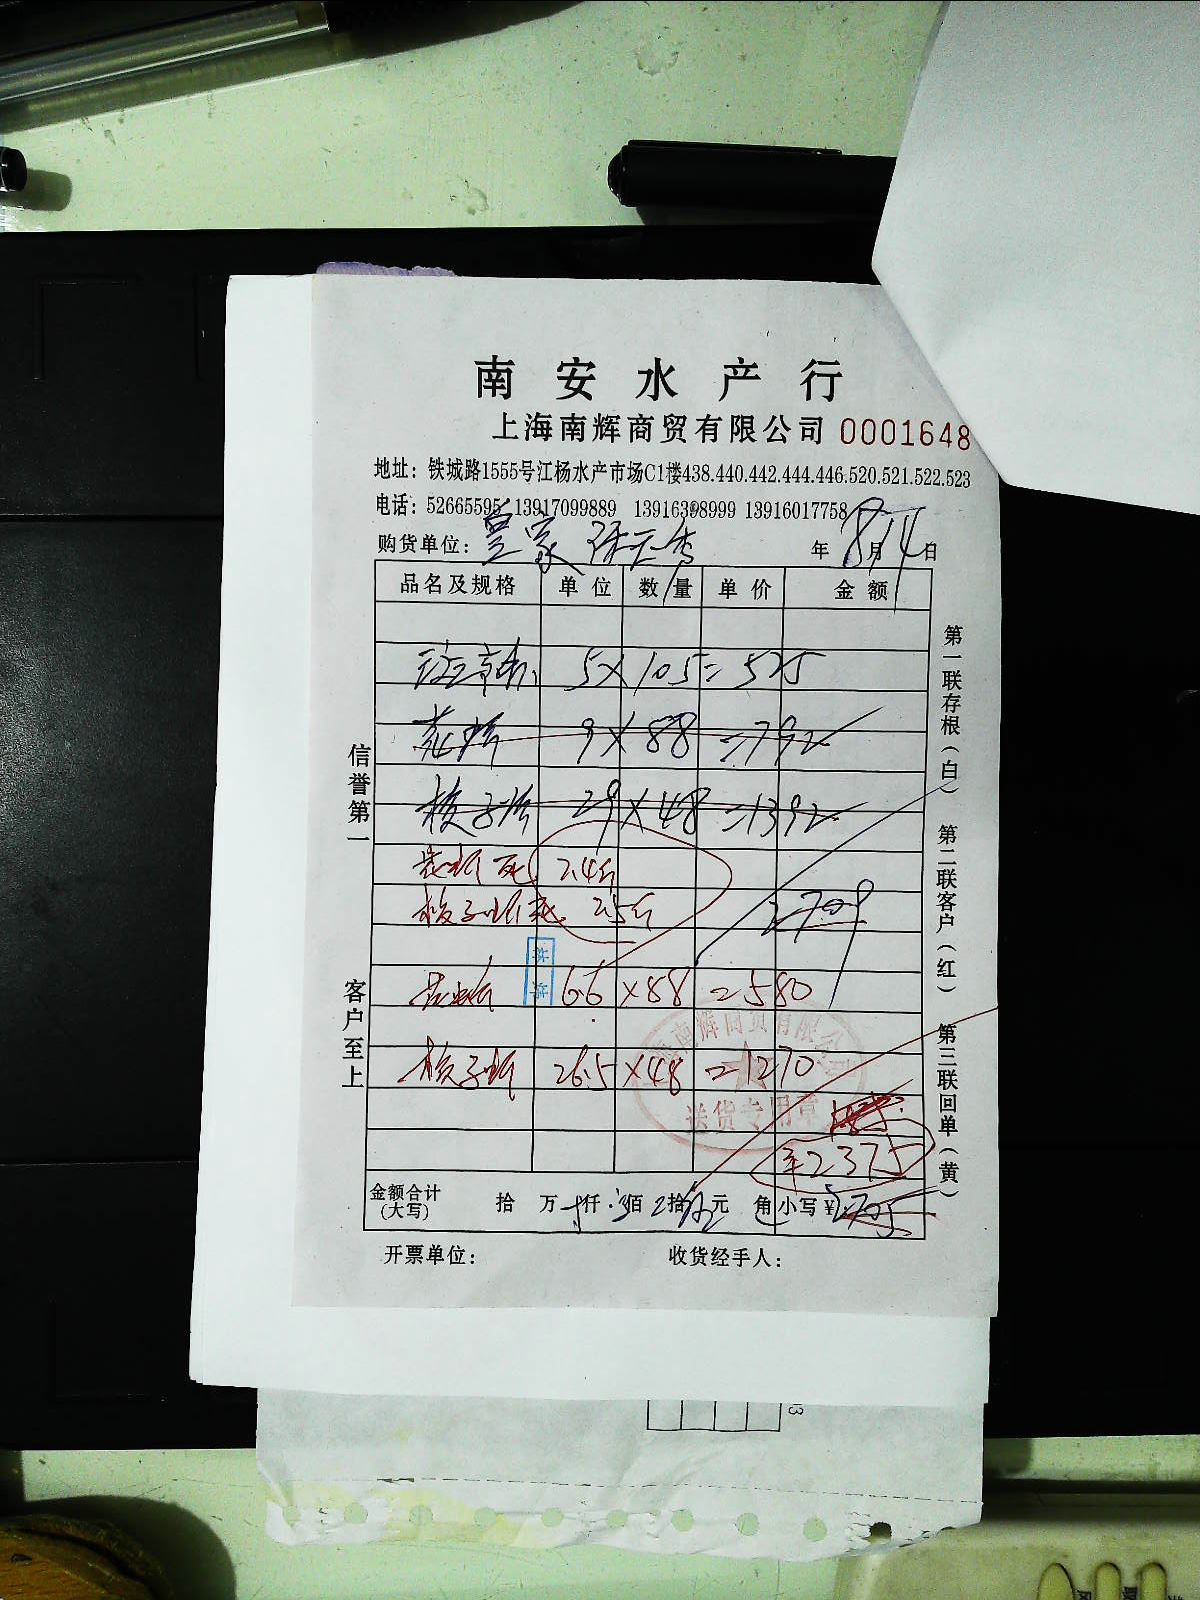 南安水产行
上海南辉商贸有限公司 0001648
地址：铁城路1555号江杨水产市场C1楼438.440.442.444.446.520.521.522.523
电话：52665595 13917099889 13916398999 13916017758
购货单位：皇家 年8月14日
品名及规格 单位 数量 单价 金额
5×105=525
9×88=792
29×48=1392
死 2.4斤
2.5斤
2709
6.6×88=580
26.5×48=1270
¥2375
金额合计(大写) 拾 万 仟 佰 拾 元 角 小写¥
开票单位： 收货经手人：
信誉第一
客户至上
第一联存根(白) 第二联客户(红) 第三联回单(黄)
南辉商贸有限公司
送货专用章